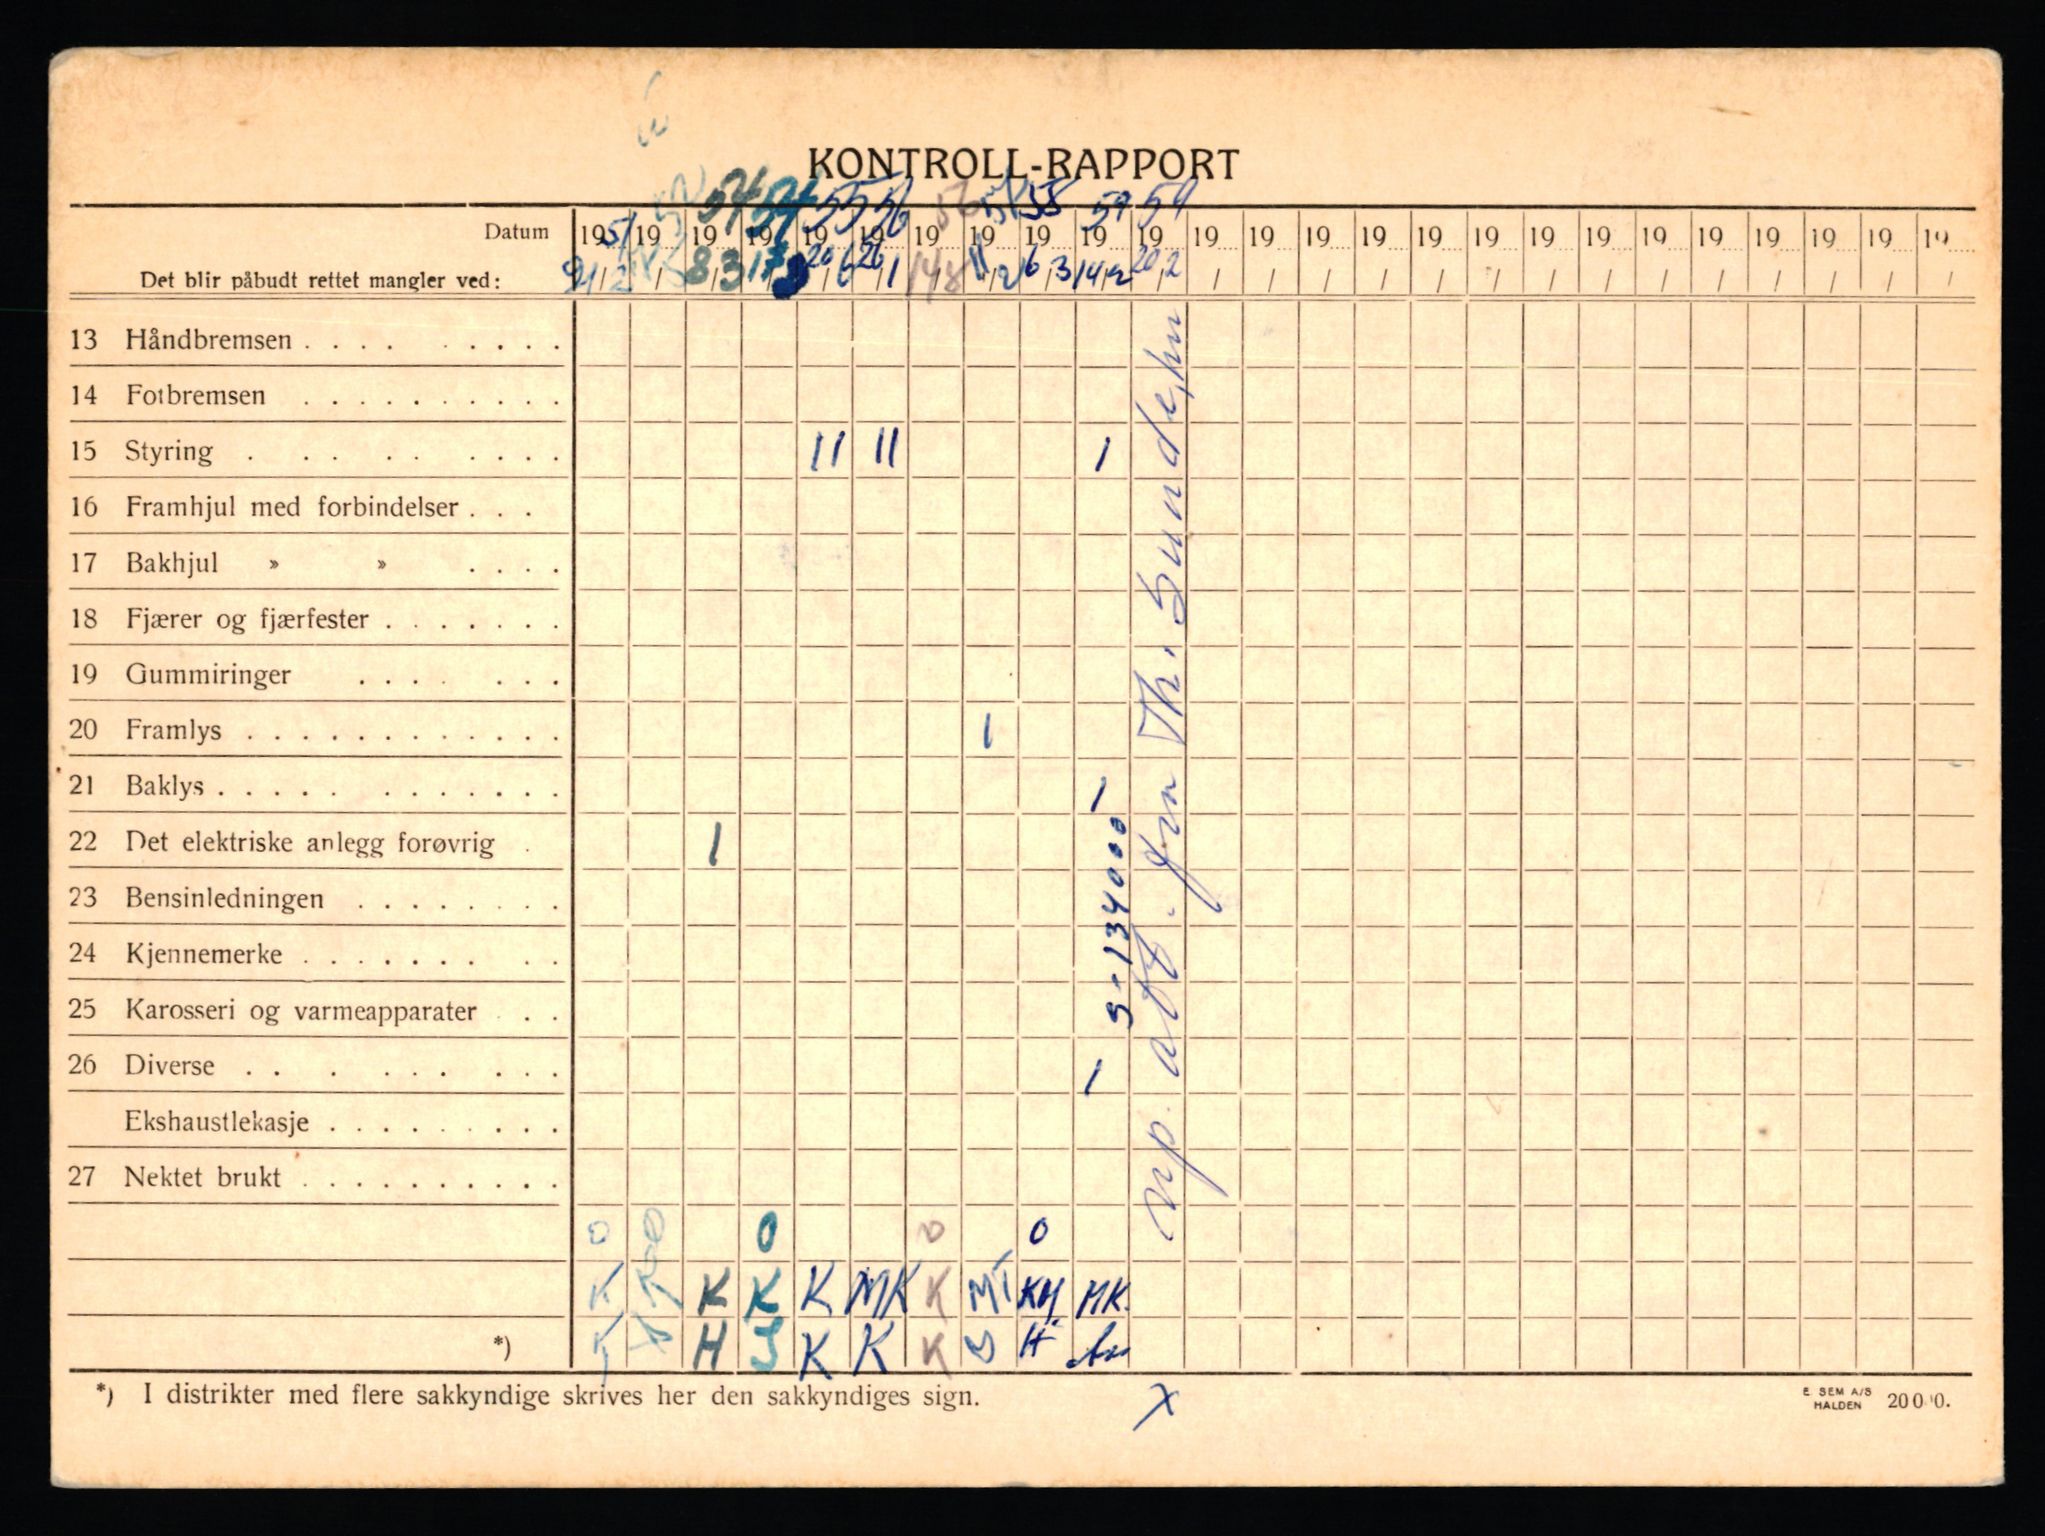 KONTROLL-RAPPORT
51 52 54 54 55 56 56 57 58 59 59
Datum 19 19 19 19 19 19 19 19 19 19 19 19 19 19 19 19 19 19 19 19 19 19 19 19 19
Det blir påbudt rettet mangler ved: 8/3 20/6 26/1 14/8 11/2 6/3 14/2 20/2 / / / / / / / / / / / / / /
13 Håndbremsen . . . . . . . . .
14 Fotbremsen . . . . . . . . . .
15 Styring . . . . . . . . 11 11 1
16 Framhjul med forbindelser . . .
17 Bakhjul » » . . . .
18 Fjærer og fjærfester . . . . . . .
19 Gummiringer . . . . . . .
20 Framlys . . . . . . . . . . . . 1
21 Baklys . . . . . . . . . . . . 1
22 Det elektriske anlegg forøvrig . 1
23 Bensinledningen . . . . . . . .
24 Kjennemerke . . . . . . . . .
25 Karosseri og varmeapparater . .
26 Diverse . . . . . . . . . 1
Ekshaustlekasje . . . . . . . . .
27 Nektet brukt . . . . . . . . . .
S-134000
att. fra Th. Sunde, hn
0 0 0 0 0
K K K K MK K MT KM. HK.
*) H S K K K S H
*) I distrikter med flere sakkyndige skrives her den sakkyndiges sign.
x
E. SEM A/S
HALDEN 20000.